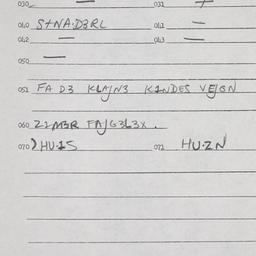 030 — 031 —
040 S+NA:D3RL 041 —
042 — 043 —
050 —
051 FA D3 KLAJN3 K1NDES VEJGN
060 Z1MB3R FAJG3L3X .
070 ) HU:1S 071 HU:2N